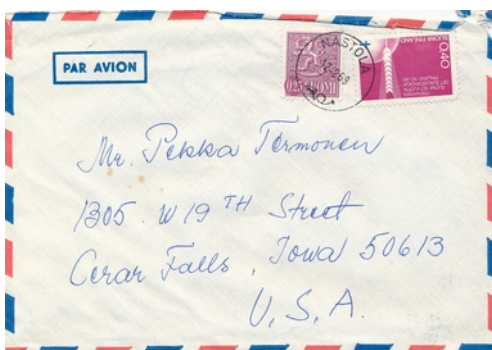 PAR AVION
NASTOLA
0,25 SUOMI
SUOMI FINLAND
0,40
Mr. Pekka Termonen
1305 W 19TH Street
Cerar Falls, Iowa 50613
U.S.A.